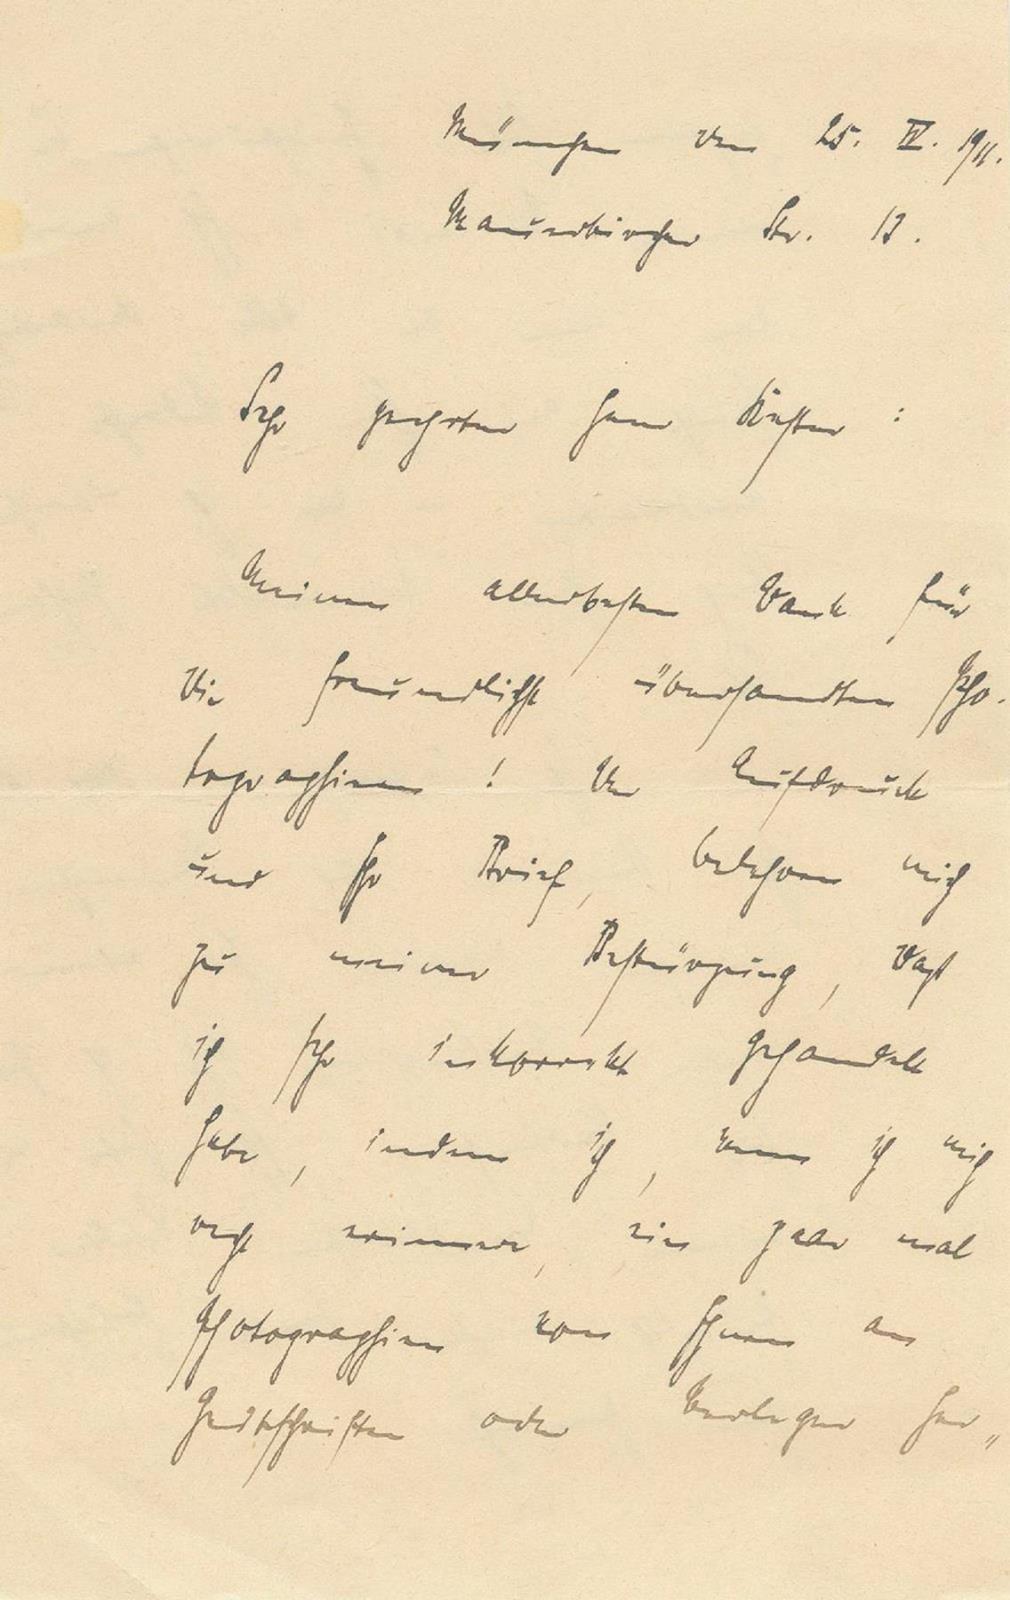 München den 25. IV. 1911.
Mauerkircher Str. 13.
Sehr geehrter Herr Kester :
Meinen allerbesten Dank für
die freundlichst übersandten Pho-
tographieen ! Der Aufdruck
und Ihr Brief, belehren mich
zu meiner Bestürzung, daß
ich sehr inkorrekt gehandelt
habe, indem ich, wenn ich mich
recht erinnere, ein paar mal
Photographien von Ihnen an
Zeitschriften oder Verleger her„